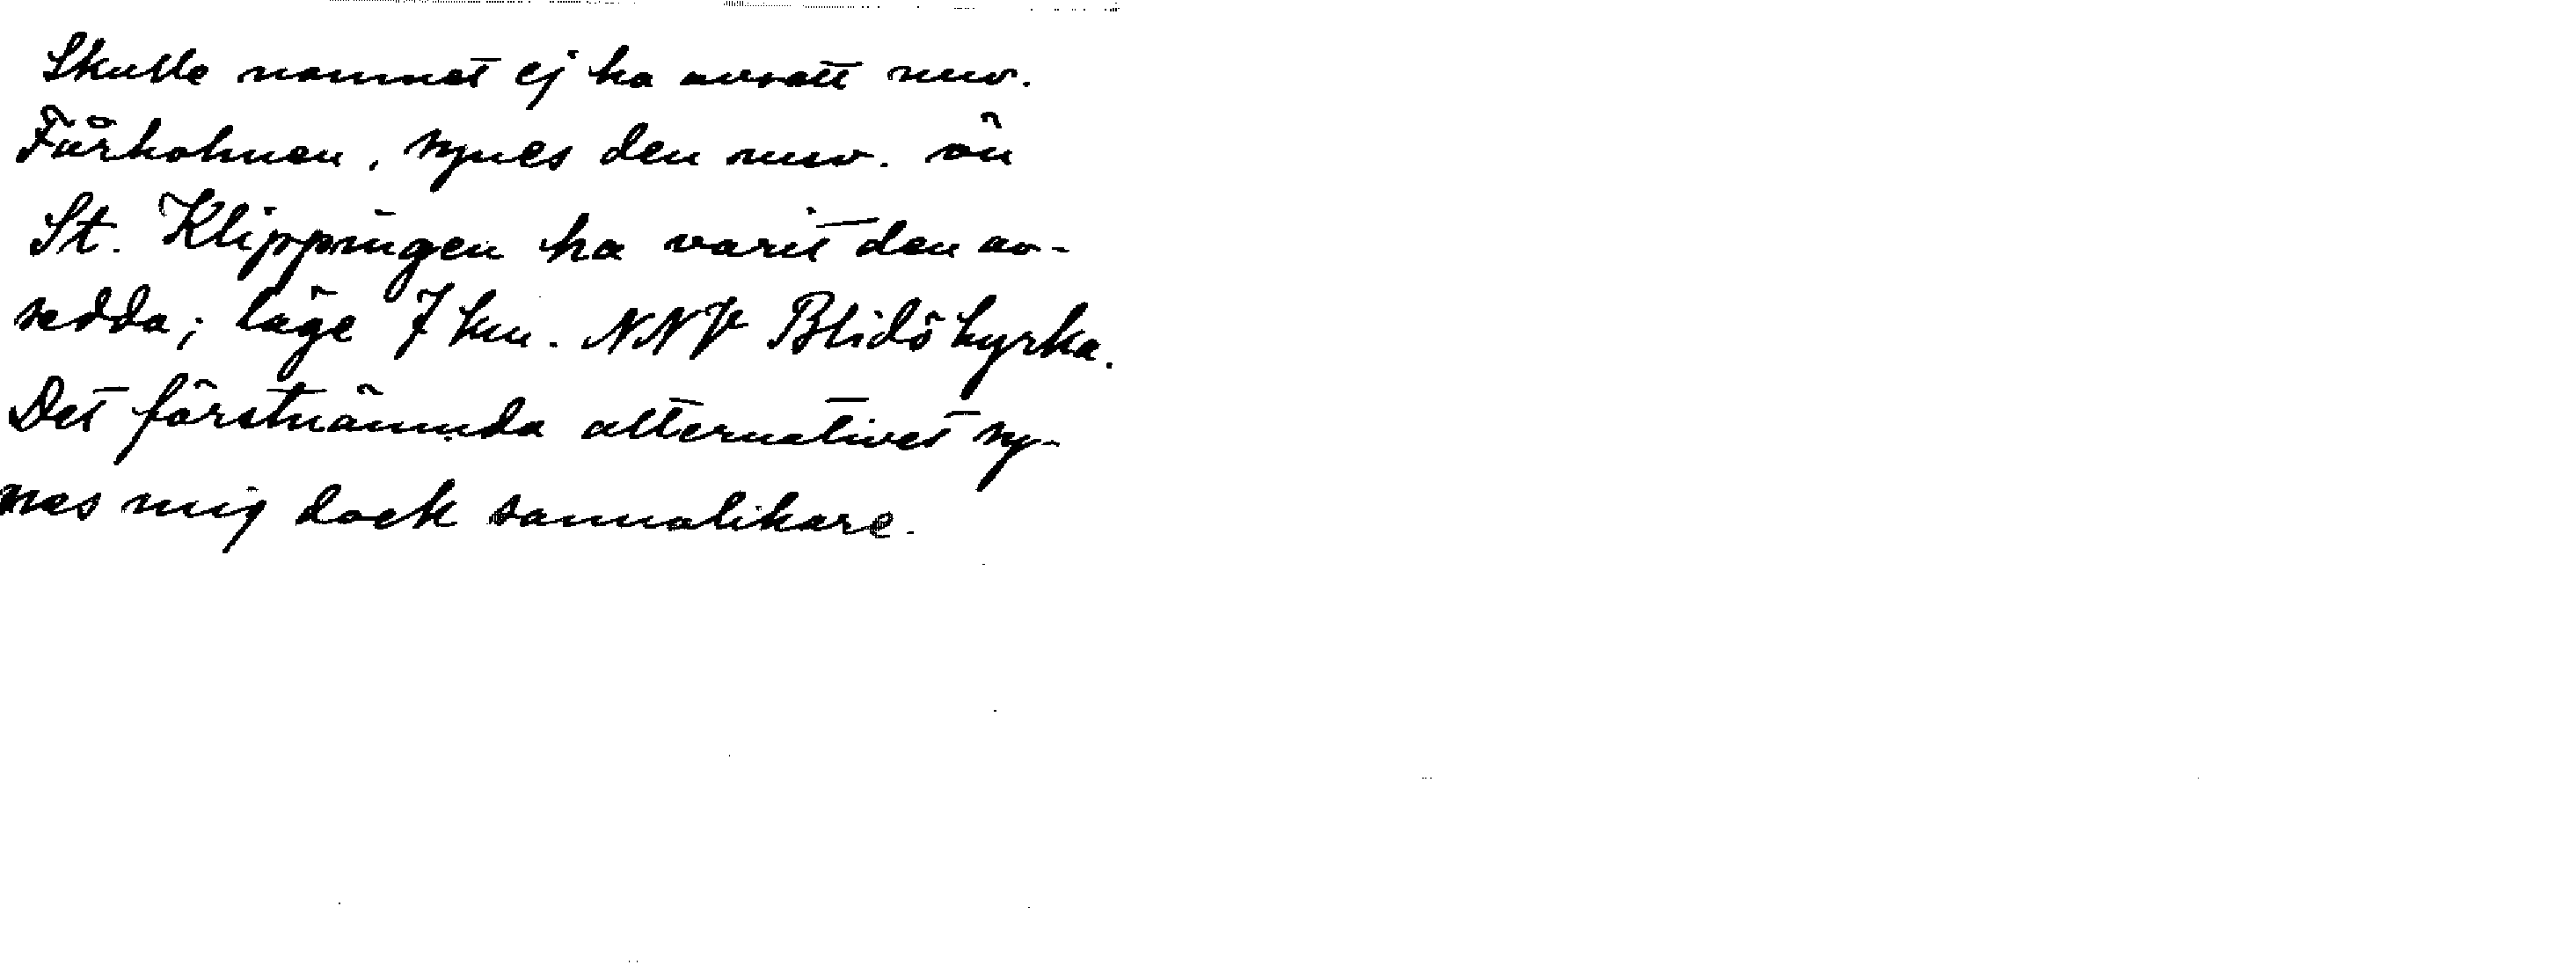 Skulle namnet ej ha avsett nuv.
Fårholmen, synes den nuv. ön
St. Klippingen ha varit den av-
sedda; läge 7 km. NNV Blidö kyrka.
Det förstnämnda alternativet sy-
nes mig dock sannolikare.